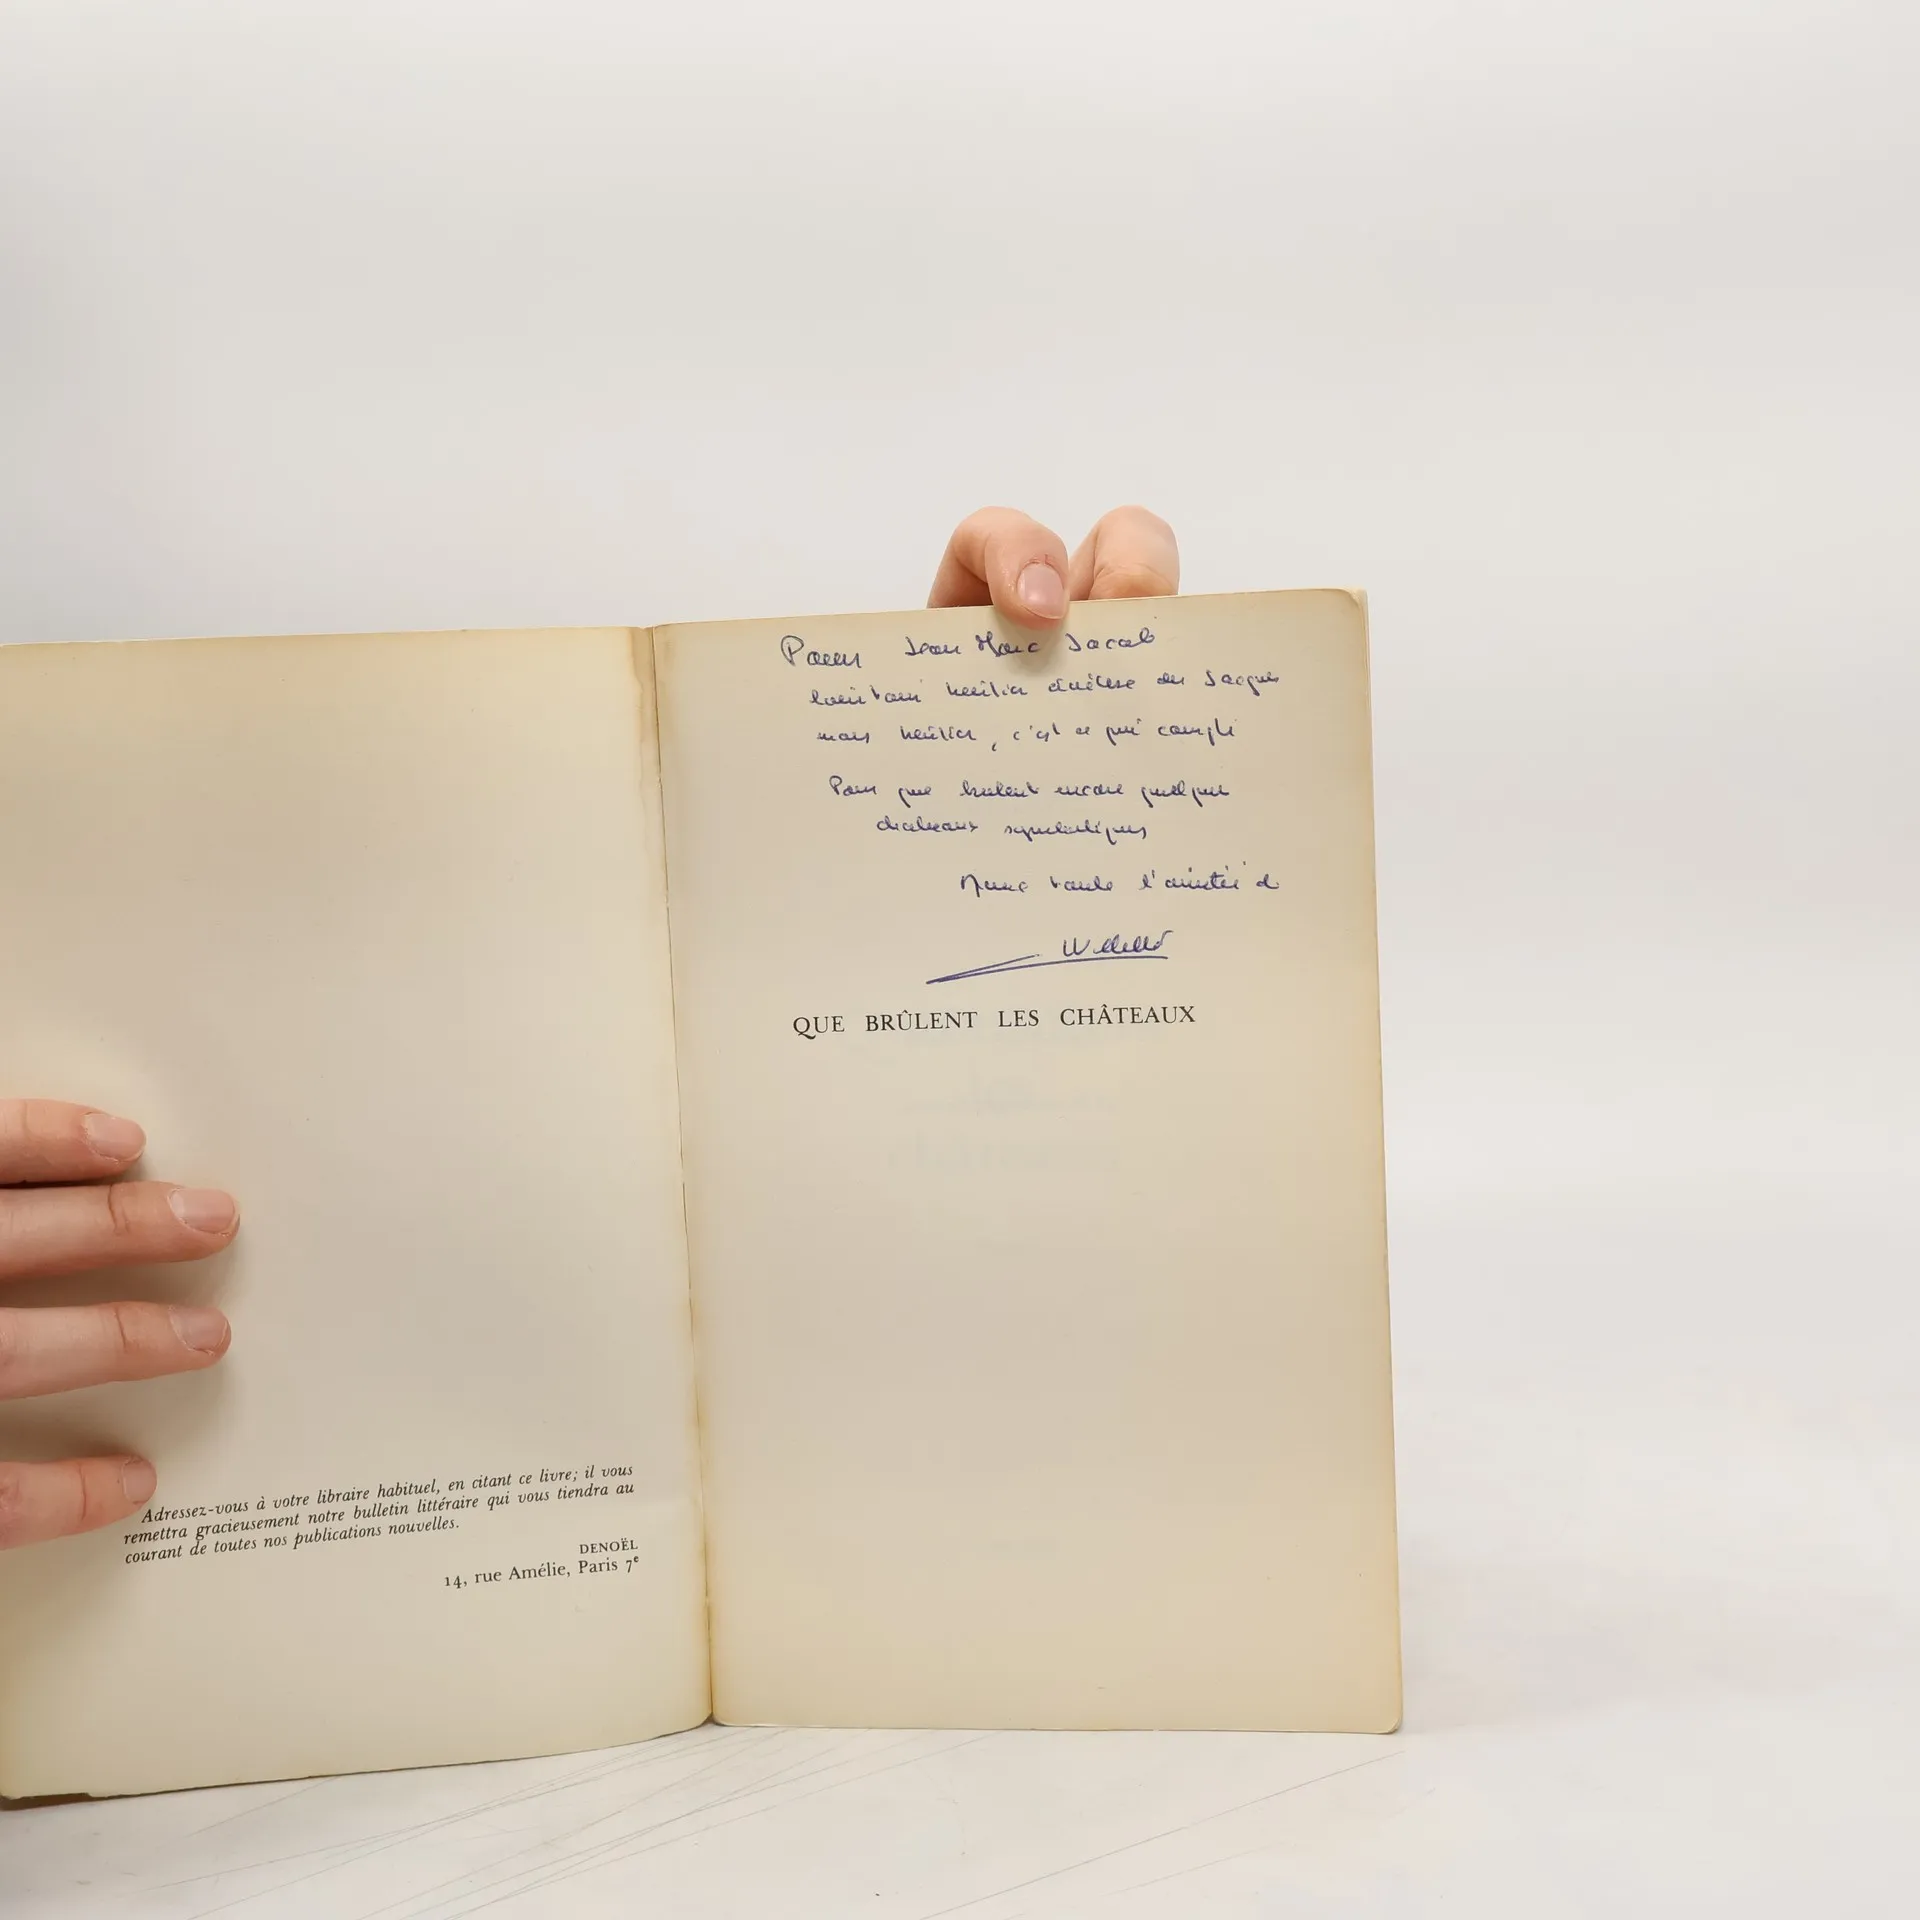 Adressez-vous à votre libraire habituel, en citant ce livre; il vous
remettra gracieusement notre bulletin littéraire qui vous tiendra au
courant de toutes nos publications nouvelles.
DENOËL
14, rue Amélie, Paris 7e
Pour Jean Marc Jacob
Jacques
mais, c'est ce qui compte
Pour que brulent encore quelques
chateaux symboliques
toute l'amitié d
QUE BRÛLENT LES CHÂTEAUX